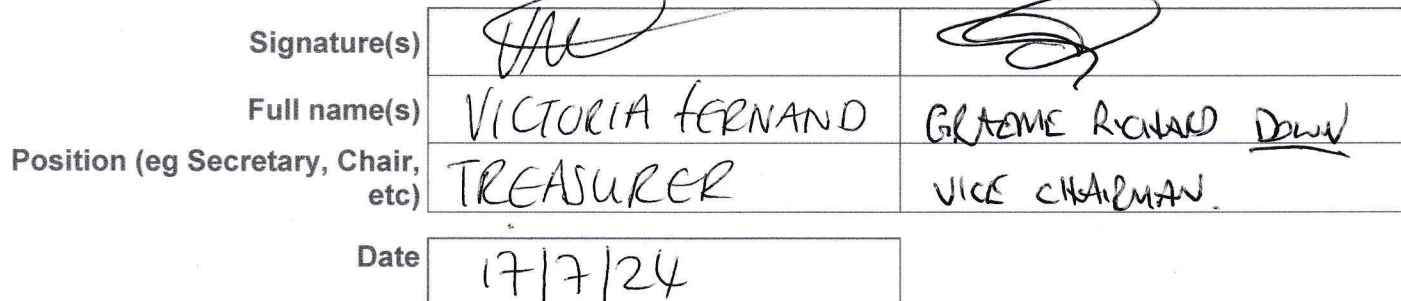 Signature(s)
Full name(s) VICTORIA FERNAND GRAEME RICHARD DOWN
Position (eg Secretary, Chair,
etc) TREASURER VICE CHAIRMAN.
Date 17/7/24